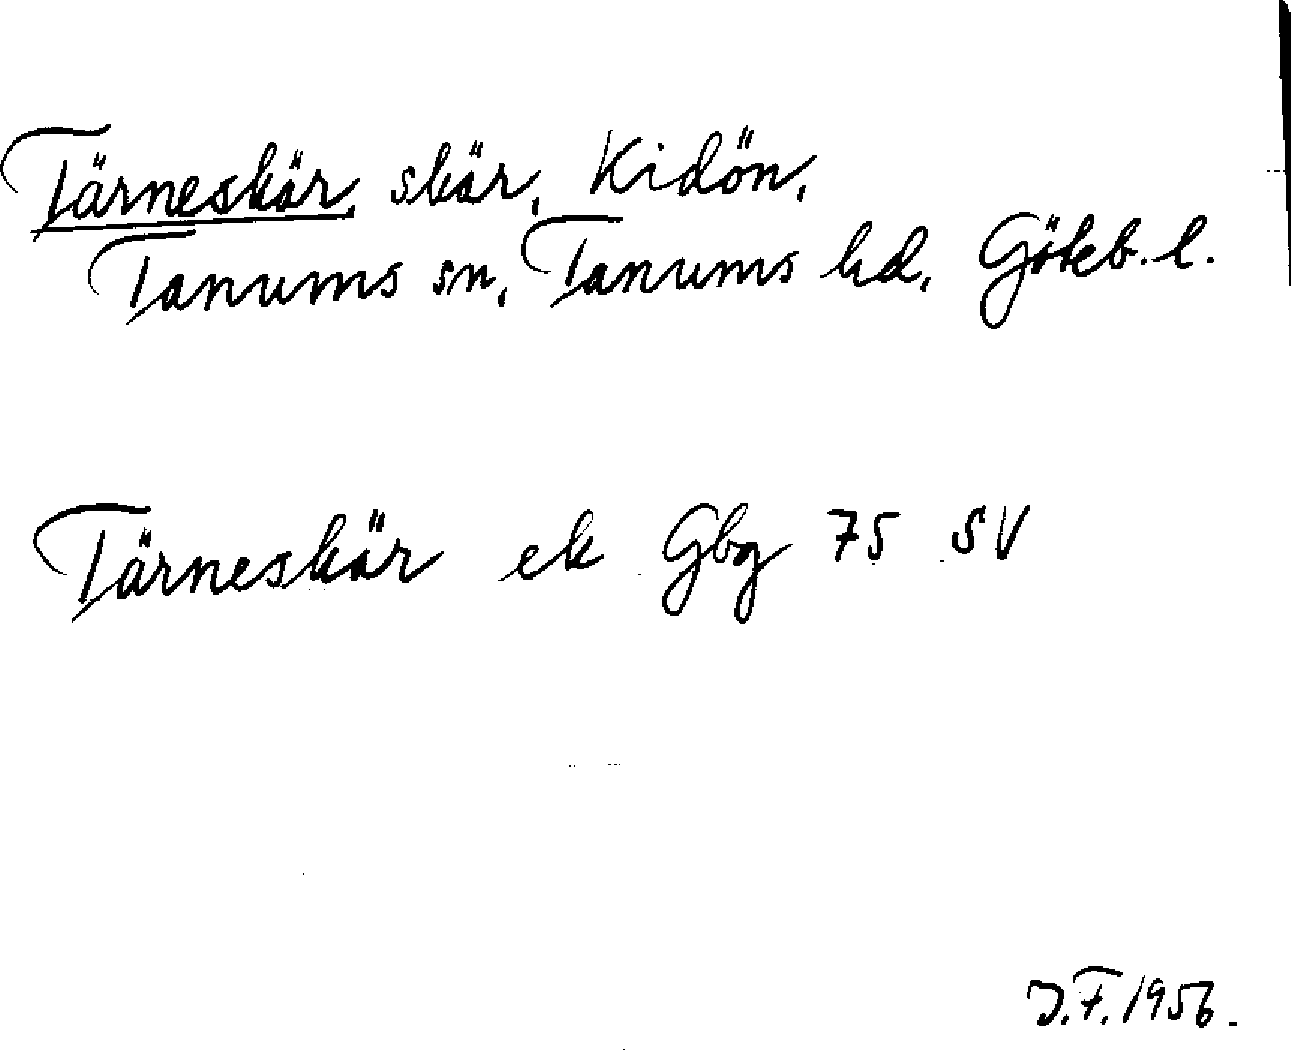 Tärneskär, skär, Kidön,
Tanums sn, Tanums hd, Göteb. l.
Tärneskär ek Gbg 75 SV
J.F. 1956.